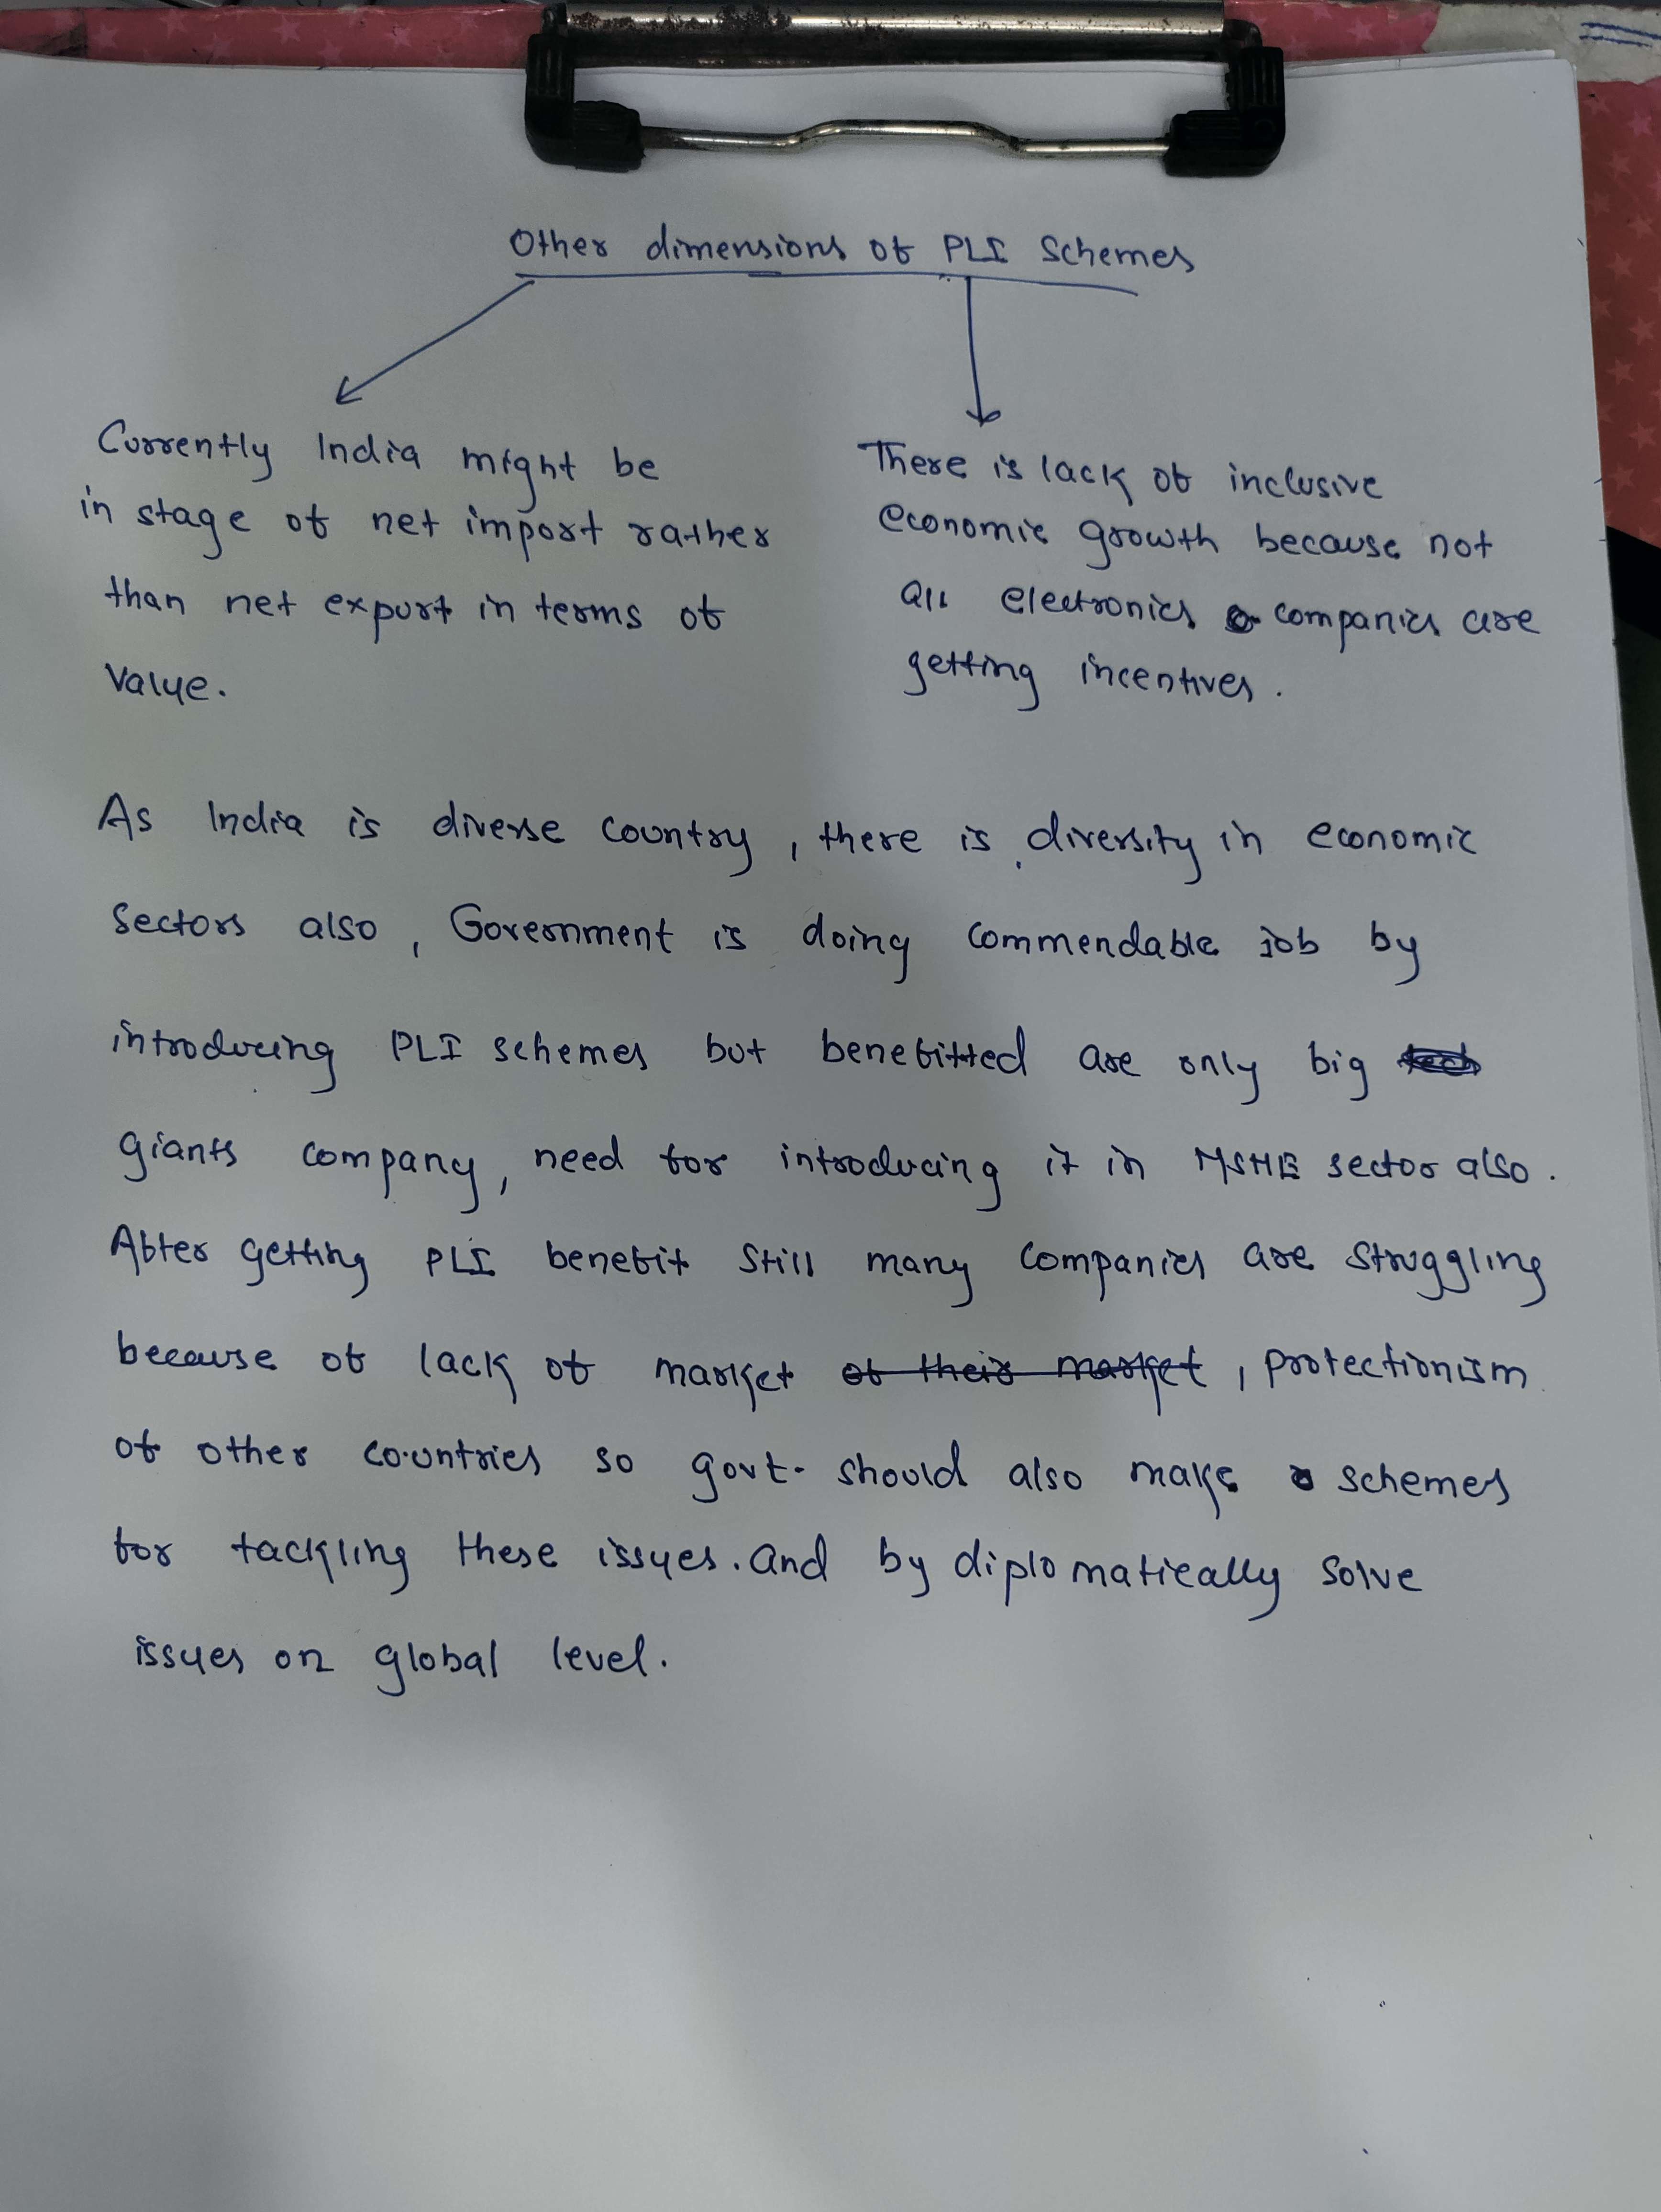 Other dimensions of PLI Schemes
Currently India might be
in stage of net import rather
than net export in terms of
value.
There is lack of inclusive
economic growth because not
all electronics companies are
getting incentives.
As India is diverse country, there is diversity in economic
sectors also, Government is doing commendable job by
introducing PLI schemes but benefitted are only big
giants company, need for introducing it in MSME sector also.
After getting PLI benefit still many companies are struggling
because of lack of market of their market, protectionism
of other countries so govt. should also make schemes
for tackling these issues. and by diplomatically solve
issues on global level.